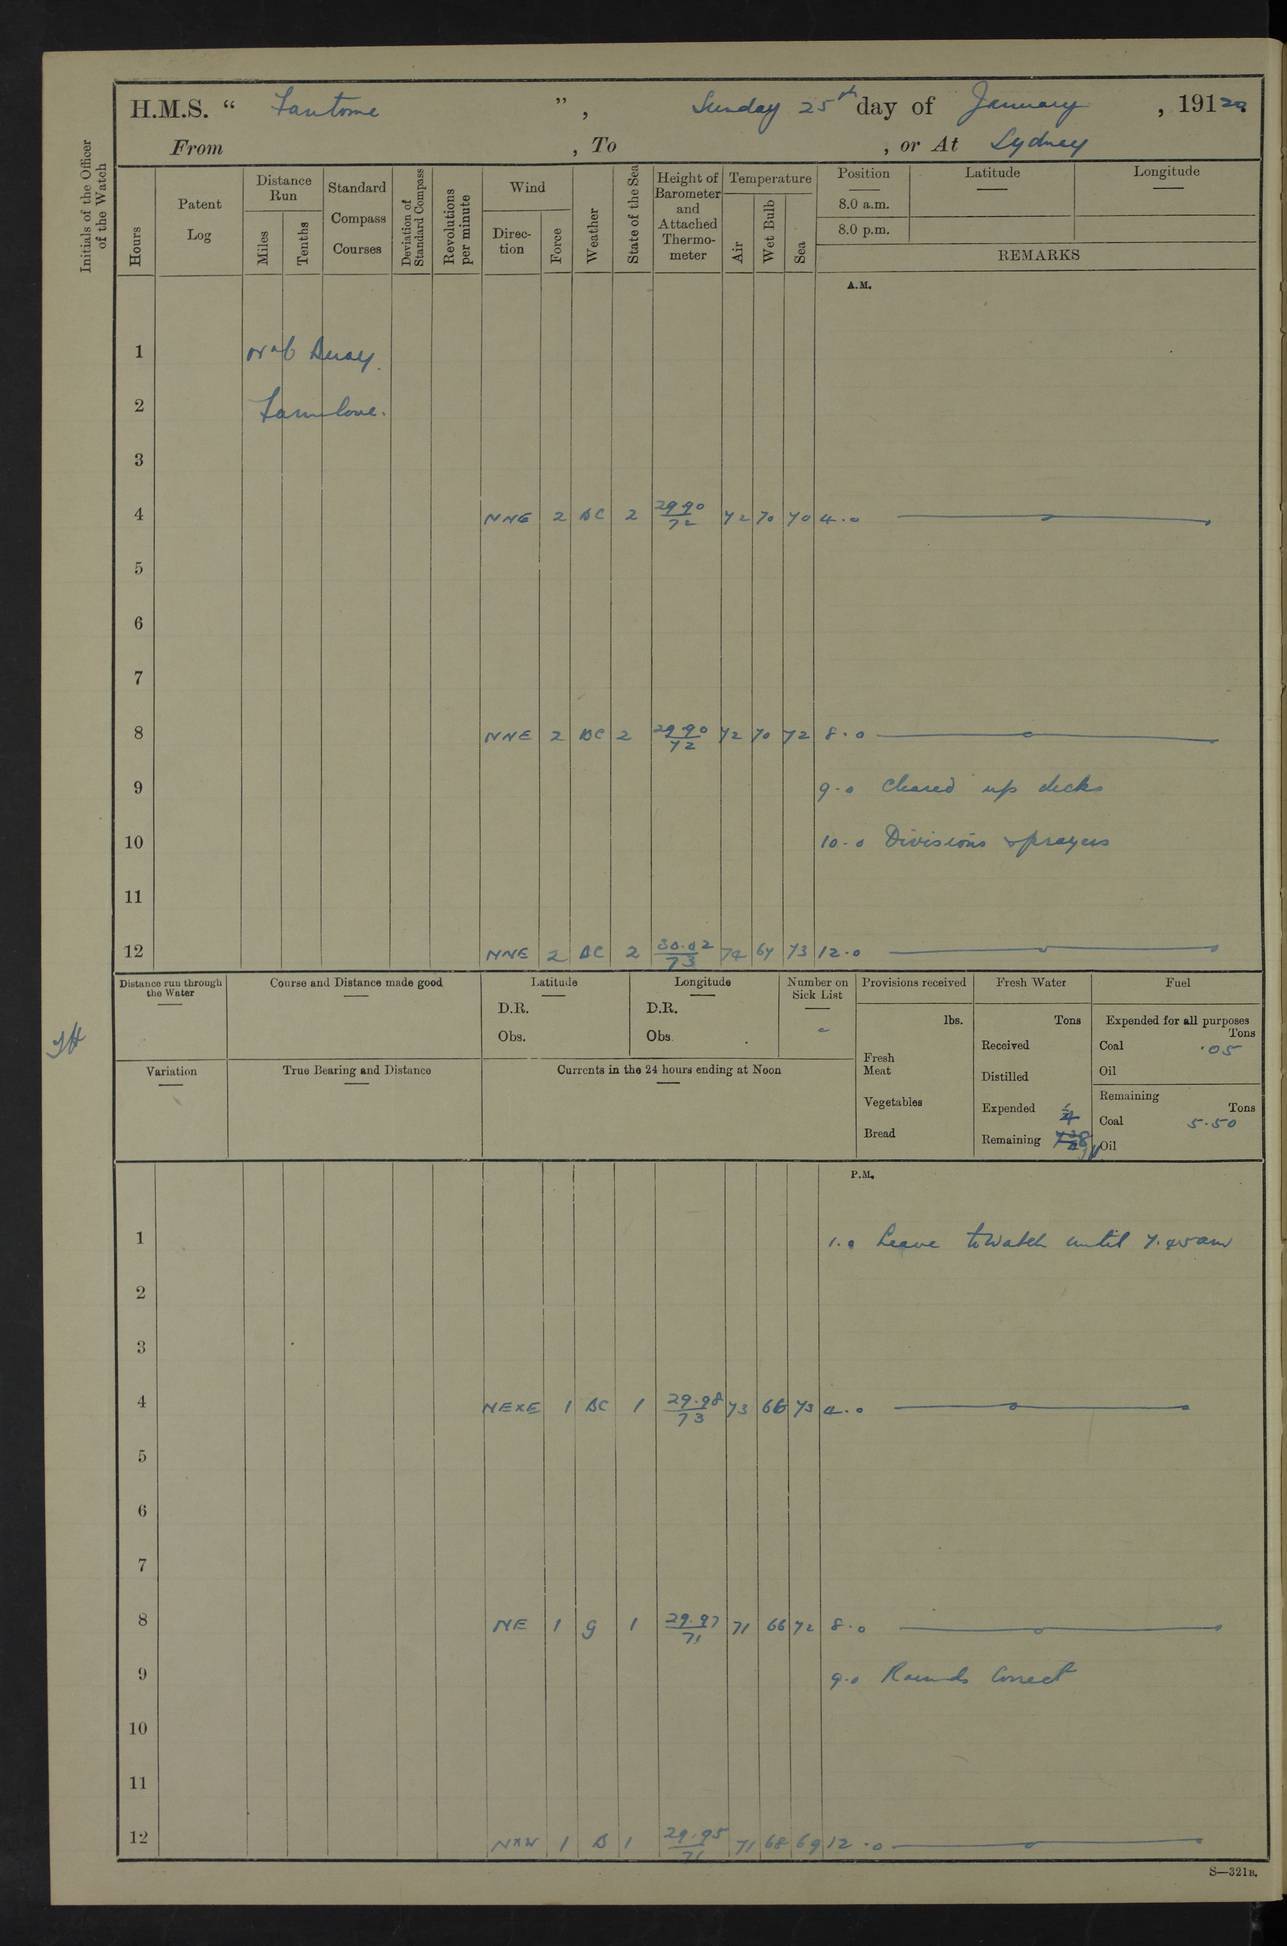 H.M.S. " Fantome ", Sunday 25th day of January, 19120
From , To , or At Sydney
Initials of the Officer of the Watch
Hours
Patent Log
Distance Run
Miles
Tenths
Standard Compass Courses
Deviation of Standard Compass
Revolutions per minute
Wind
Direc-tion
Force
Weather
State of the Sea
Height of Barometer and Attached Thermo-meter
Temperature
Air
Wet Bulb
Sea
Position
8.0 a.m.
8.0 p.m.
Latitude
Longitude
REMARKS
A.M.
1
2
3
4 NNE 2 BC 2 29.90/72 72 70 70 4.0
5
6
7
8 NNE 2 BC 2 29.90/72 72 70 72 8.0
9 9.0 Cleared up decks
10 10.0 Divisions & prayers
11
12 NNE 2 BC 2 30.02/73 74 67 73 12.0
Distance run through the Water
Course and Distance made good
Latitude
D.R.
Obs.
Longitude
D.R.
Obs.
Number on Sick List
-
Provisions received
lbs.
Fresh Meat
Vegetables
Bread
Fresh Water
Tons
Received
Distilled
Expended
Remaining
Fuel
Expended for all purposes
Tons
Coal .05
Oil
Remaining
Tons
Coal 5.50
Oil
Variation
True Bearing and Distance
Currents in the 24 hours ending at Noon
P.M.
1 1.0 Leave to Watch until 7.45 am
2
3
4 NExE 1 BC 1 29.98/73 73 66 73 4.0
5
6
7
8 NE 1 g 1 29.97/71 71 66 72 8.0
9 9.0 Rounds Correct
10
11
12 NxW 1 B 1 29.95/71 71 68 69 12.0
S—321B.